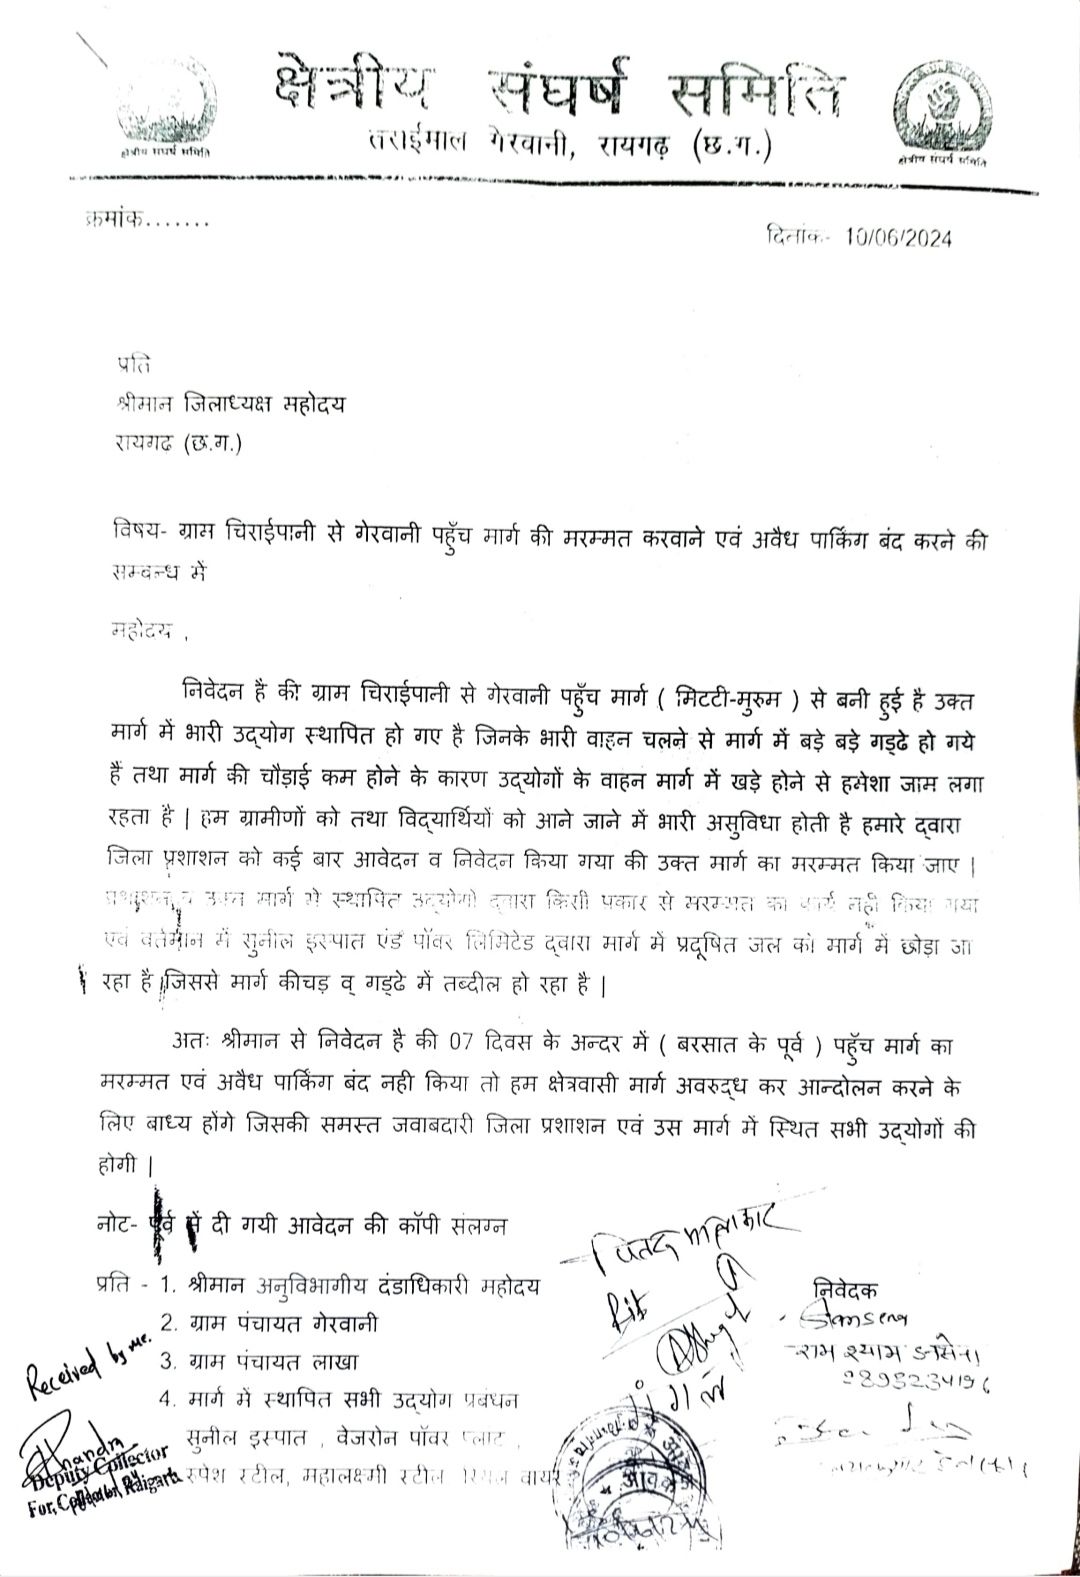 क्षेत्रीय संघर्ष समिति
तराईमाल गेरवानी, रायगढ़ (छ.ग.)
क्षेत्रीय संघर्ष समिति
क्षेत्रीय संघर्ष समिति
क्रमांक.......
दिनांक- 10/06/2024
प्रति
श्रीमान जिलाध्यक्ष महोदय
रायगढ (छ.ग.)
विषय- ग्राम चिराईपानी से गेरवानी पहुँच मार्ग की मरम्मत करवाने एवं अवैध पार्किंग बंद करने की
सम्बन्ध में
महोदय ,
निवेदन है की ग्राम चिराईपानी से गेरवानी पहुँच मार्ग ( मिटटी-मुरुम ) से बनी हुई है उक्त
मार्ग में भारी उद्योग स्थापित हो गए है जिनके भारी वाहन चलने से मार्ग में बड़े बड़े गड्ढे हो गये
हैं तथा मार्ग की चौड़ाई कम होने के कारण उद्योगों के वाहन मार्ग में खड़े होने से हमेशा जाम लगा
रहता है | हम ग्रामीणों को तथा विद्यार्थियों को आने जाने में भारी असुविधा होती है हमारे द्वारा
जिला प्रशाशन को कई बार आवेदन व निवेदन किया गया की उक्त मार्ग का मरम्मत किया जाए |
प्रशाशन व उक्त मार्ग में स्थापित उद्योगो द्वारा किसी प्रकार से मरम्मत का कार्य नही किया गया
एवं वर्तमान में सुनील इस्पात एंड पॉवर लिमिटेड द्वारा मार्ग में प्रदूषित जल को मार्ग में छोड़ा जा
रहा है जिससे मार्ग कीचड़ व् गड्ढे में तब्दील हो रहा है |
अतः श्रीमान से निवेदन है की 07 दिवस के अन्दर में ( बरसात के पूर्व ) पहुँच मार्ग का
मरम्मत एवं अवैध पार्किंग बंद नही किया तो हम क्षेत्रवासी मार्ग अवरुद्ध कर आन्दोलन करने के
लिए बाध्य होंगे जिसकी समस्त जवाबदारी जिला प्रशाशन एवं उस मार्ग में स्थित सभी उद्योगों की
होगी |
नोट- पूर्व में दी गयी आवेदन की कॉपी संलग्न
प्रति - 1. श्रीमान अनुविभागीय दंडाधिकारी महोदय
2. ग्राम पंचायत गेरवानी
3. ग्राम पंचायत लाखा
4. मार्ग में स्थापित सभी उद्योग प्रबंधन
सुनील इस्पात , वेजरोन पॉवर प्लाट ,
रुपेश स्टील, महालक्ष्मी स्टील रियल वायर
निवेदक
Received by me.
Deputy Collector
For, Collector, Raigarh